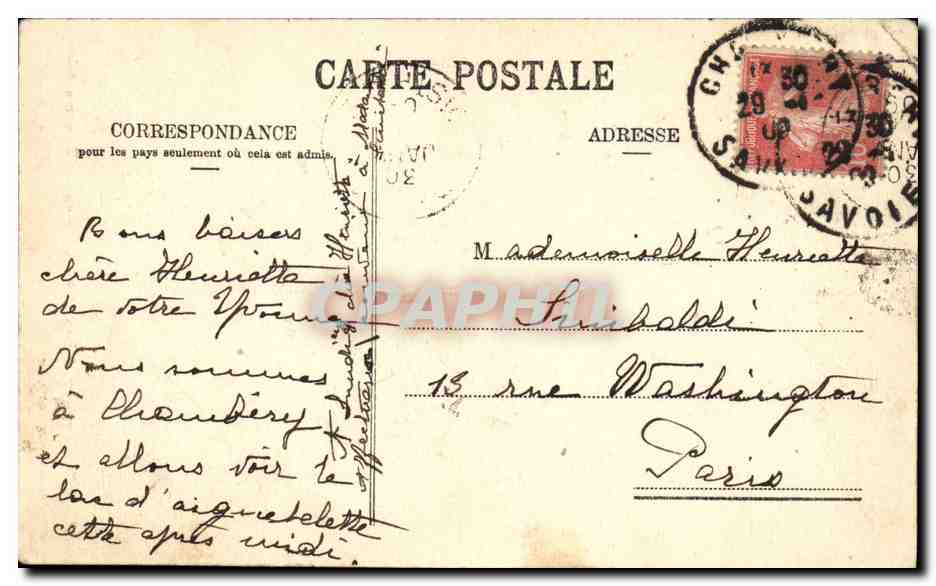 CARTE POSTALE
CORRESPONDANCE
pour les pays seulement où cela est admis.
ADRESSE
Bons baisers
chère Henriette
de votre Yvonne
Nous sommes
à Chambéry
et allons voir le
lac d'aiguebelette
cette après midi.
Mademoiselle Henriette
Sinibaldi
13 rue Washington
Paris
SAVOIE
30
29
SAVOIE
JAN
30
CPAPHIL